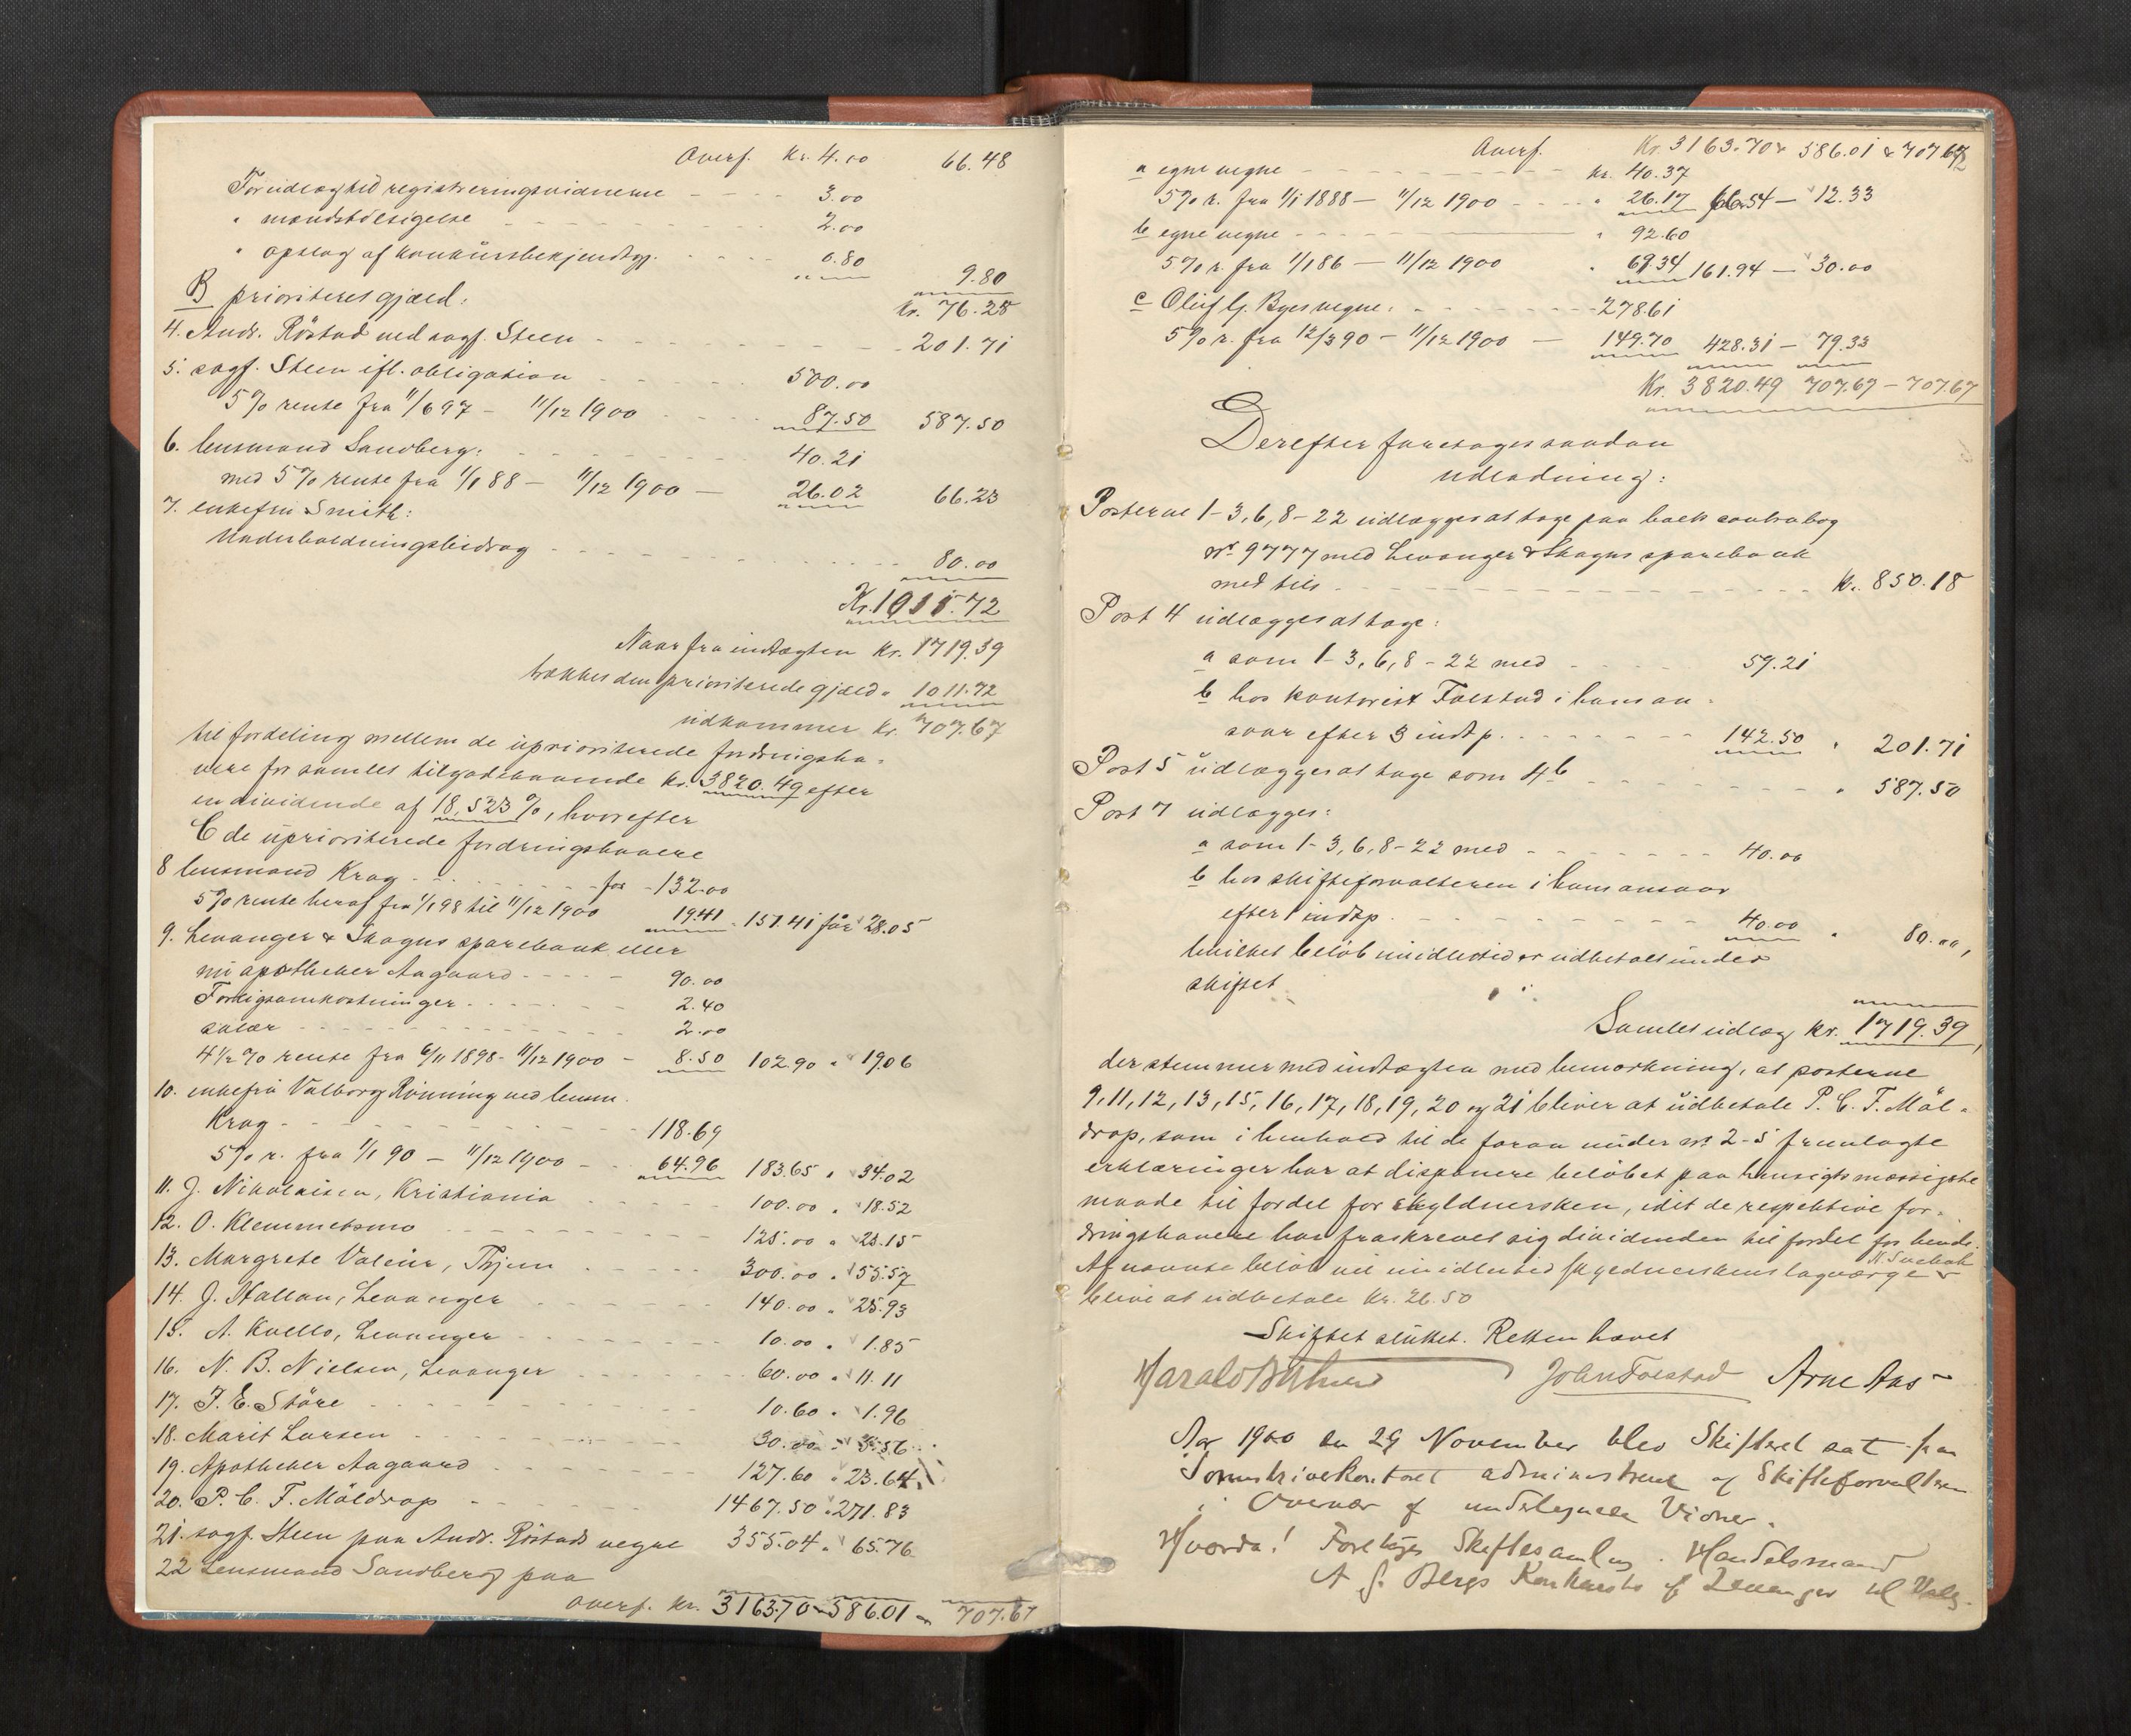 Overf. Kr. 4.00 66.48
For indlægtid registreringsvidnerne 3.00
" mandsbesigelse 2.00
" opslag af konkursbekjendtgj. 0.80 9.80
B prioriteret gjæld: Kr. 76.28
4. Andr. Röstad ved sagf. Steen 201.71
5. sagf. Steen ifl. obligation 500.00
5% rente fra 11/6 97 - 11/12 1900 87.50 587.50
6. lensmand Sandberg: 40.21
med 5% rente fra 1/1 88 - 11/12 1900 - 26.02 66.23
7. enkefru Smith:
Underholdningsbidrag 80.00
Kr. 1011.72
Naar fra indtægten Kr. 1719.39
trækkes den prioriterede gjæld " 1011.72
udkommer Kr. 707.67
til fordeling mellem de uprioriterede fordringsha-
vere for samlet tilgodehavende Kr. 3820.49 efter
en dividende af 18,523 %, hvorefter
C de uprioriterede fordringshavere
8 lensmand Krag for - 132.00
5% rente heraf fra 1/1 98 til 11/12 1900 19.41 151.41 får 28.05
9. Levanger & Skogns sparebank eller
nu apotheker Aagaard 90.00
Forligsomkostninger 2.40
salær 2.00
4½% rente fra 6/11 1898 - 11/12 1900 - 8.50 102.90 " 19.06
10. enkefru Valborg Rönning ved lensm.
Krag 118.69
5% r. fra 1/1 90 - 11/12 1900 - 64.96 183.65 " 34.02
11. J. Nikolaisen, Kristiania 100.00 " 18.52
12. O. Klemmetsmo 125.00 " 23.15
13. Margrete Valeur, Thjem 300.00 " 55.57
14. J. Hallan, Levanger 140.00 " 25.93
15. A. Kvello, Levanger 10.00 " 1.85
16. N. B. Nielsen, Levanger 60.00 " 11.11
17. J. E. Störe 10.60 " 1.96
18. Marit Larsen 30.00 " 5.56
19. Apotheker Aagaard 127.60 " 23.64
20. P. C. F. Möldrop 1467.50 " 271.83
21. sagf. Steen paa Andr. Röstads vegne 355.04 " 65.76
22 Lensmand Sandberg paa
Overf. Kr. 3163.70 - 586.01 - 707.67
Overf. Kr. 3163.70 & 586.01 & 707.67
a egne vegne Kr. 40.37
5% r. fra 1/1 1888 - 11/12 1900 " 26.17 66.54 - 12.33
b egne vegne " 92.60
5% r. fra 1/1 86 - 11/12 1900 " 69.34 161.94 - 30.00
c Oluf G. Byes vegne: 278.61
5% r. fra 12/3 90 - 11/12 1900 - 149.70 428.31 - 79.33
Kr. 3820.49 707.67 - 707.67
Derefter foretages saadan
udlodning:
Posterne 1-3, 6, 8-22 udlægges at tage paa boets contrabog
No 9777 med Levanger & Skogns sparebank
med tils. Kr. 850.18
Post 4 udlægges at tage:
a som 1-3, 6, 8-22 med 59.21
b hos kontorist Folstad i hans an-
svar efter 3 indtp. 142.50 " 201.71
Post 5 udlægges at tage som 4b " 587.50
Post 7 udlægges:
a som 1-3, 6, 8-22 med 40.00
b hos skifteforvalteren i hans ansvar
efter 1 indtp. 40.00 " 80.00,
hvilket beløb imidlertid er udbetalt under
skiftet
Samlet udlæg Kr. 1719.39,
der stemmer med indtægten med bemærkning, at posterne
9, 11, 12, 13, 15, 16, 17, 18, 19, 20 og 21 bliver at udbetale P. C. F. Möl-
drop, som i henhold til de foran under No 2-5 fremlagte
erklæringer har at disponere beløbet paa hensigtsmæssigste
maade til fordel for skyldnersken, idet de respektive for-
dringshavere har fraskrevet sig dividenden til fordel for hende.
Af nævnte beløb vil imidlertid skyldnerskens lagværge
blive at udbetale Kr. 26.50
Skiftet sluttet. Retten hævet
John Folstad Arne Aas
Aar 1900 den 29 November blev Skifteret sat paa
Sorenskriverkontoret administreret af Skifteforvalteren
i Overvær af undertegnede Vidner.
Hvorda! Foretoges Skiftesamling i Handelsmand
A J. Bergs Konkursbo af Levanger til